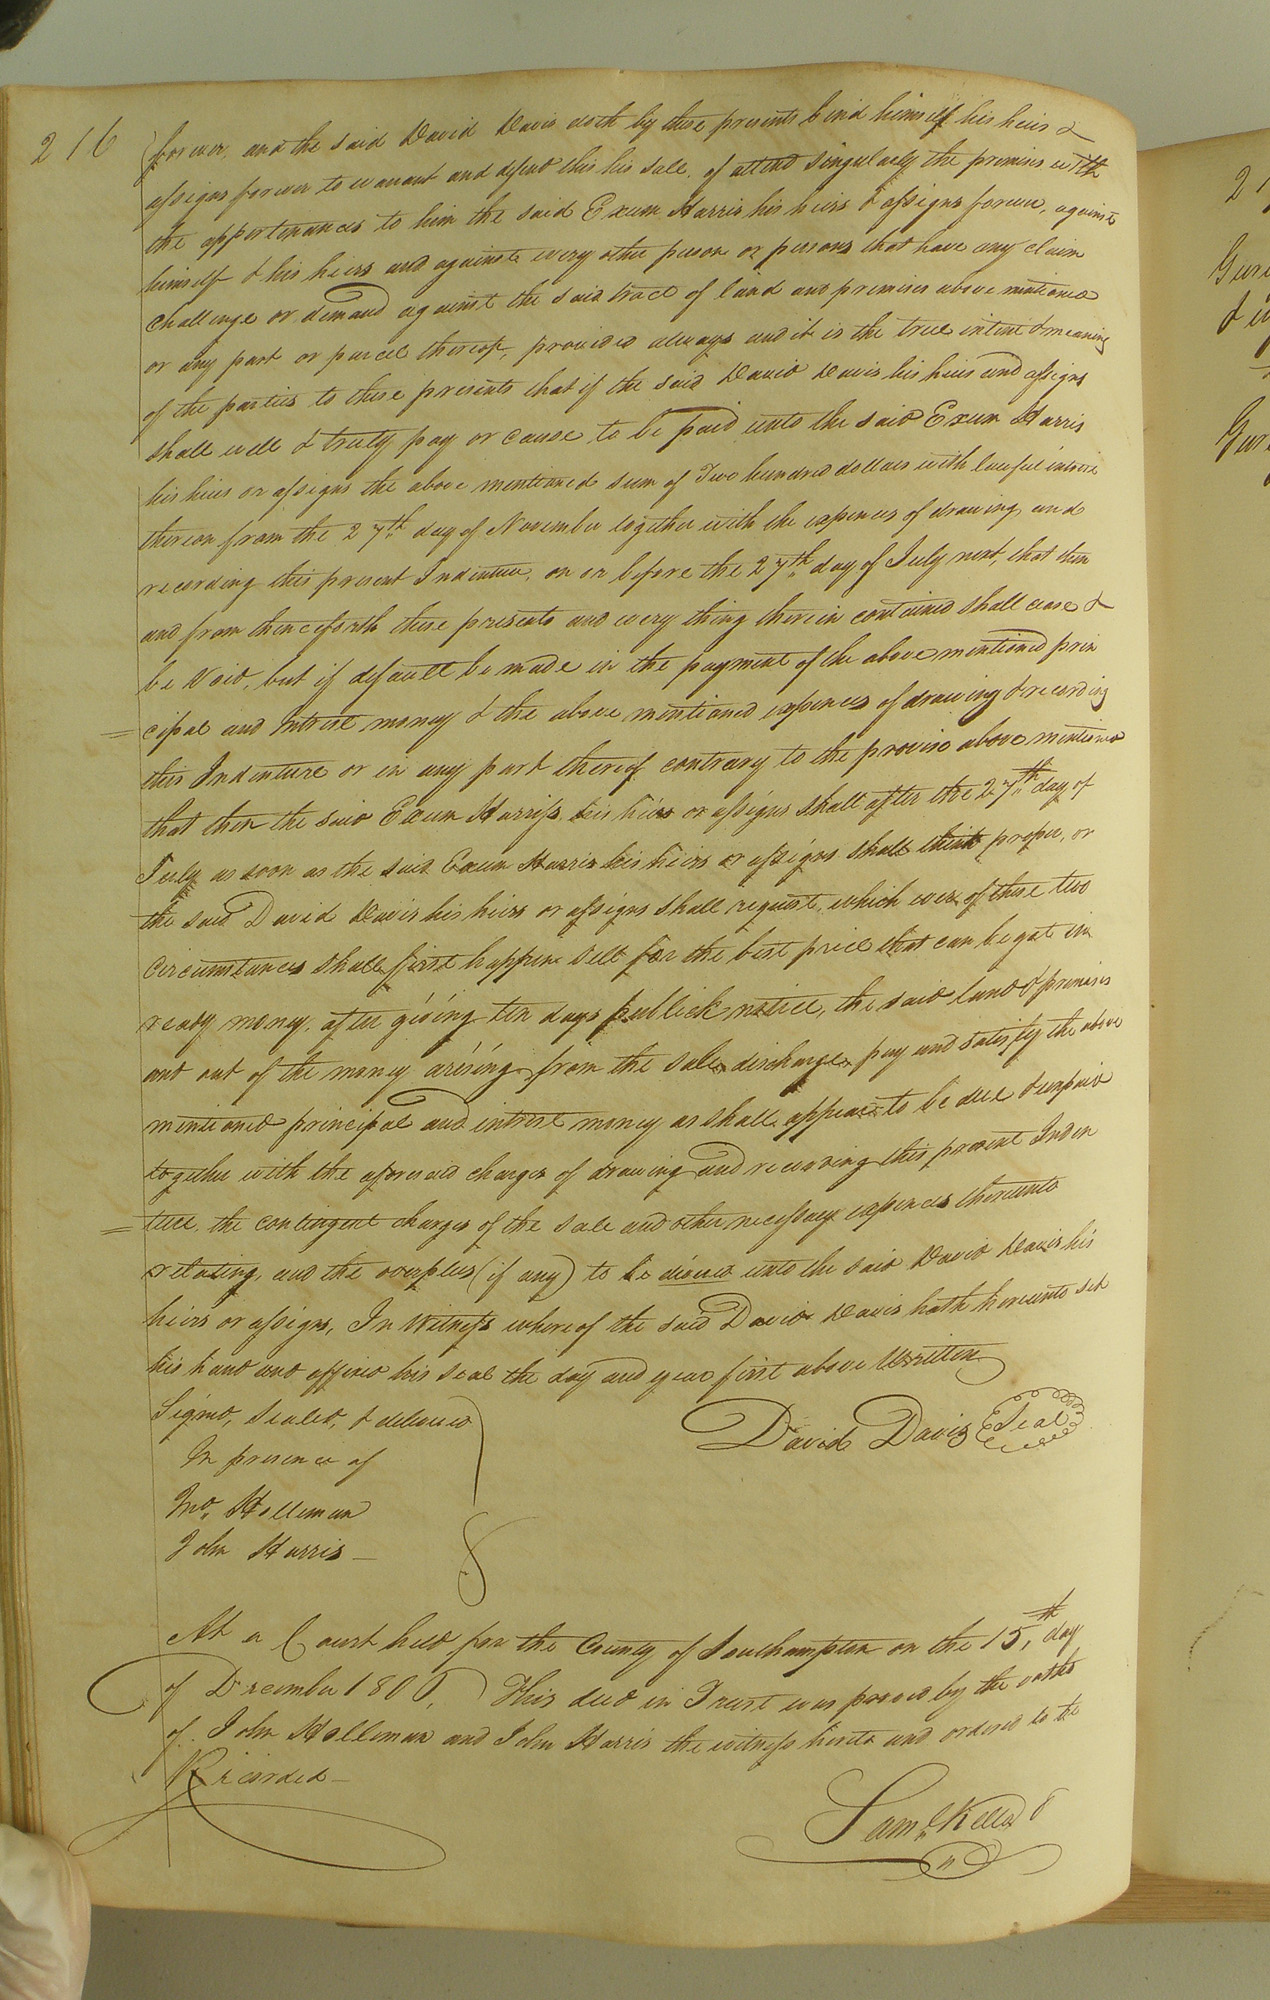 216
forever, and the said David Davis doth by these presents bind himself his heirs &
assigns forever to warrant and defend this his sale, of all and singularly the premises with
the appertenances to him the said Exum Harris his heirs & assigns forever, against
himself & his heirs and against every other person or persons that have any claim
challenge or demand against the said tract of land and premises above mentioned
or any part or parcel thereof, provided always and it is the true intent & meaning
of the parties to these presents that if the said David Davis his heirs and assigns
shall well & truly pay or cause to be paid unto the said Exum Harris
his heirs or assigns the above mentioned sum of Two hundred dollars with lawful intrest
thereon from the 27th day of November together with the expences of drawing and
recording this present Indenture, on or before the 27th day of July next, that then
and from thenceforth these presents and every thing therein contained shall cease &
be Void, but if default be made in the payment of the above mentioned prin
= cipal and intrest money & the above mentioned expences of drawing & recording
this Indenture or in any part thereof contrary to the proviso above mentioned
that then the said Exum Harriss his heirs or assigns shall after the 27th day of
July as soon as the said Exum Harris his heirs or assigns shall think proper, or
the said David Davis his heirs or assigns shall request, which ever of these two
circumstances shall first happen sell for the best price that can be got in
ready money, after giving ten days publick notice, the said land & premises
and out of the money arising from the sale discharge pay and satisfy the above
mentioned principal and intrest money as shall appear to be due & unpaid
together with the aforesaid charges of drawing and recording this present Inden
= ture, the contingent charges of the sale and other necessary expences thereunto
relating, and the overplus (if any) to be divied unto the said David Davis his
heirs or assigns, In Witness whereof the said David Davis hath hereunto set
his hand and affixed his seal the day and year first above Written
Signed, sealed, & delivered
In presence of
David Davis Seal
Jno. Holleman
John Harris
At a Court held for the County of Southampton on the 15th day
of December 1800, This deed in Trust was proved by the oaths
of John Holleman and John Harris the witness hereto and ordered to be
Recorded
Saml Kello
2